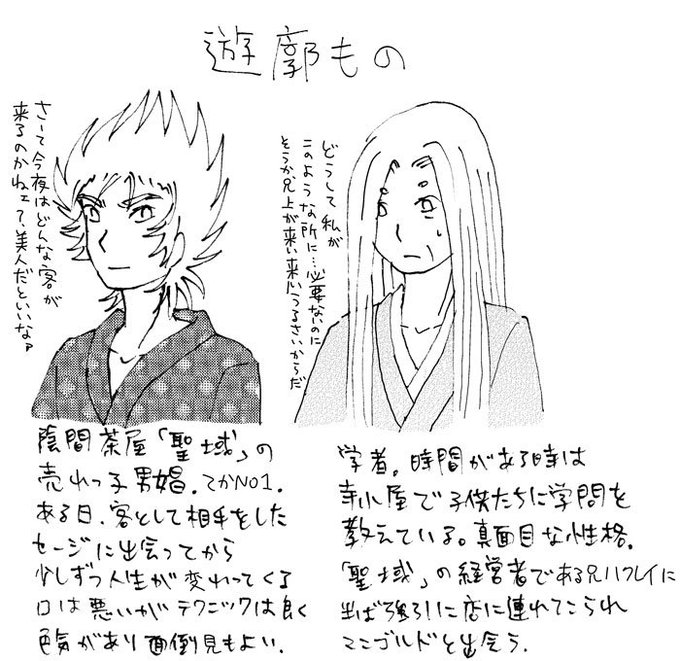 遊廓もの
さーて今夜はどんな客が
来るのかねェて、美人だといいな
どうして私が
このような所に…必要ないのに
そうか兄上が来い来いうるさいからだ
陰間茶屋「聖域」の
売れっ子男娼。てかNO1.
ある日、客として相手をした
セージに出会ってから
少しずつ人生が変わってくる
口は悪いがテクニックは良く
色気があり面倒見もよい.
学者。時間がある時は
寺小屋で子供たちに学問を
教えている。真面目な性格.
「聖域」の経営者である兄ハクレイに
半ば強引に店に連れてこられ
マニゴルドと出会う.